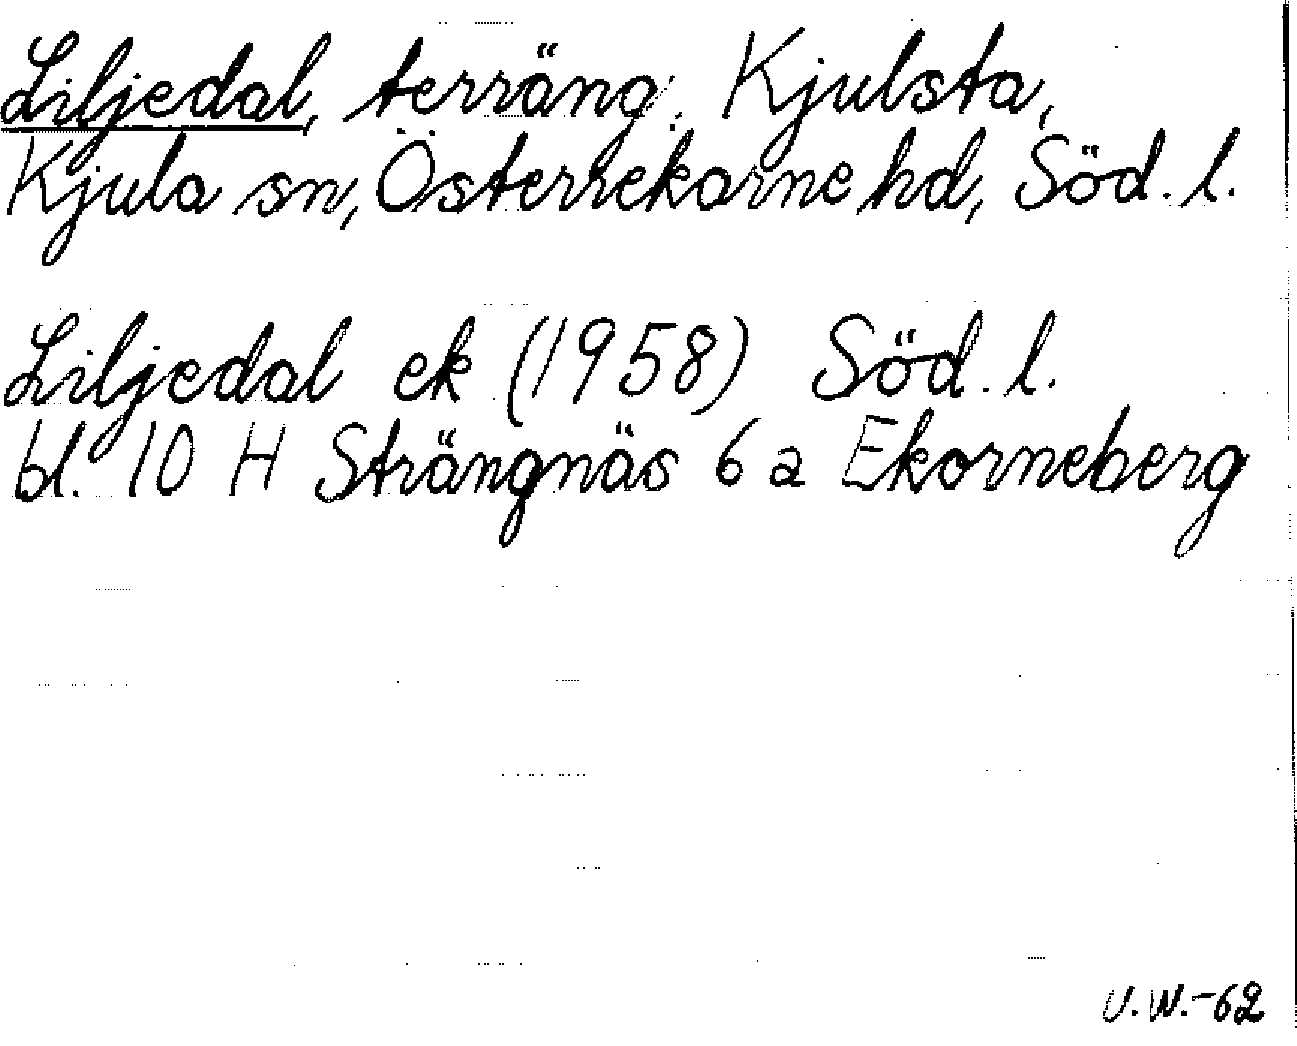 Liljedal, terräng, Kjulsta,
Kjula sn, Österrekarne hd, Söd. l.
Liljedal ek (1958) Söd. l.
bl. 10 H Strängnäs 6 a Ekorneberg
U.W.-62